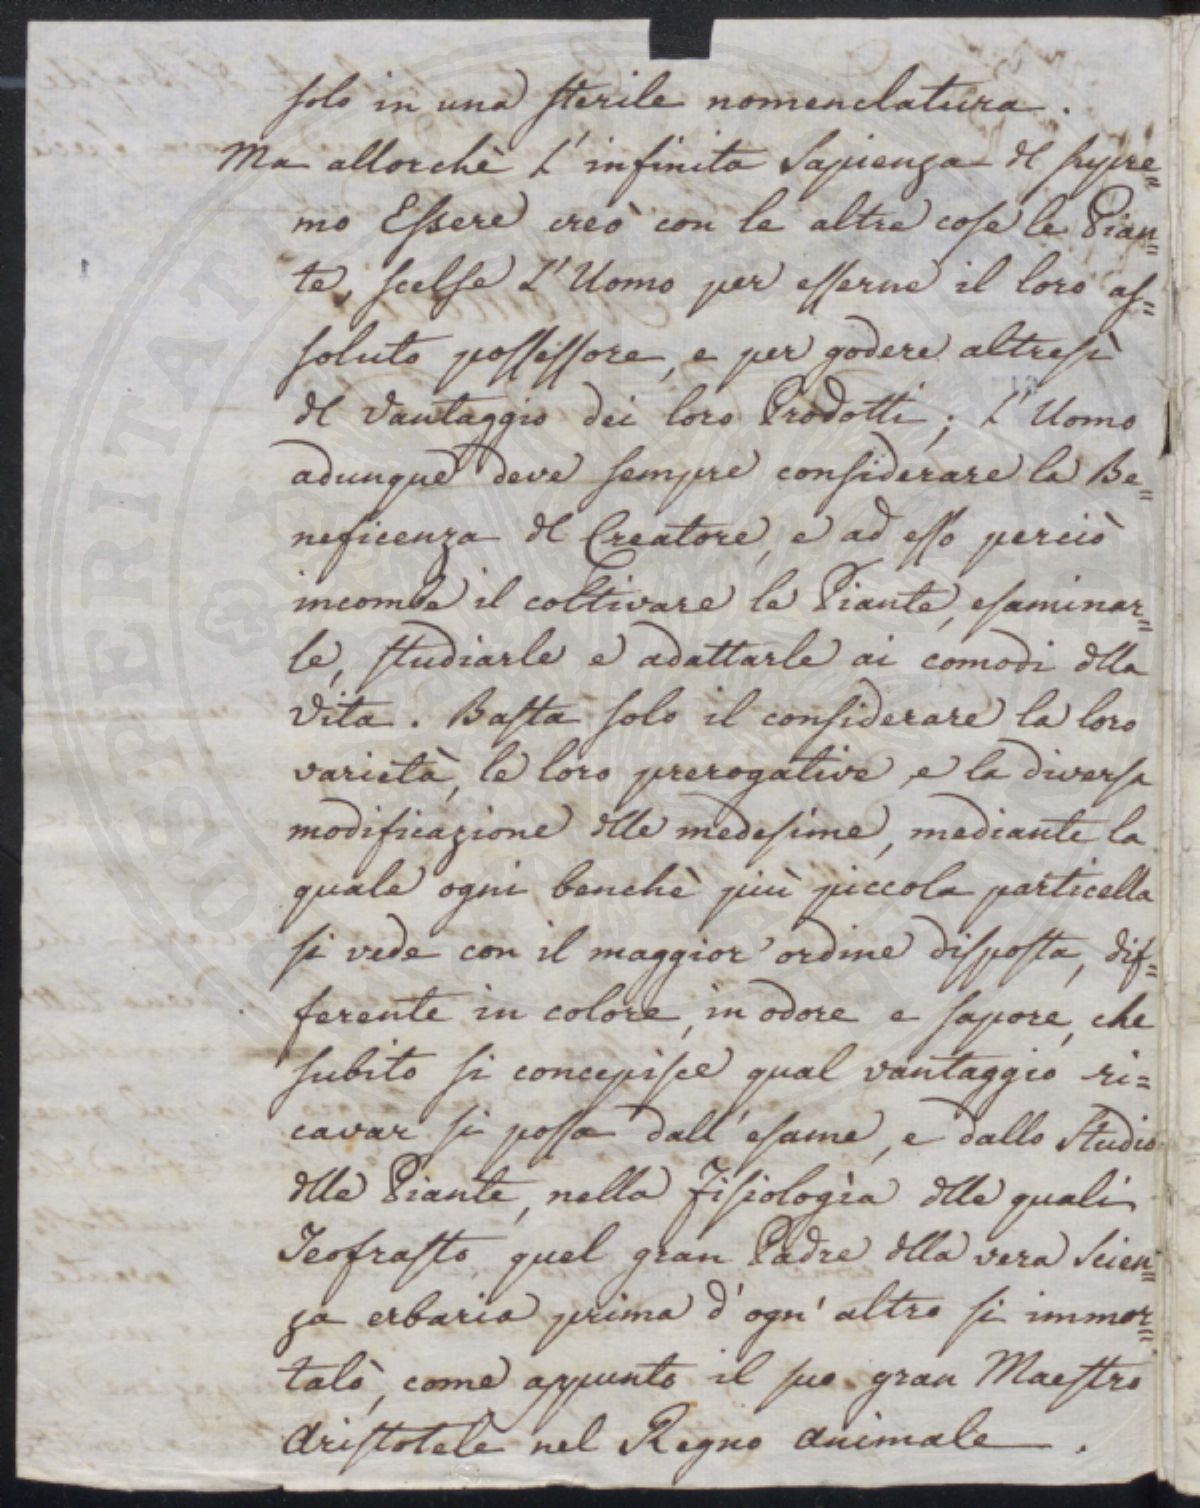 solo in una sterile nomenclatura.
Ma allorchè l'infinita Sapienza del supre=
mo Essere creò con le altre cose le Pian=
te, scelse l'Uomo per esserne il loro as=
soluto possessore, e per godere altresì
del vantaggio dei loro Prodotti; l'Uomo
adunque deve sempre considerare la Be=
neficenza del Creatore, e ad esso perciò
incombe il coltivare le Piante, esaminar=
le, studiarle e adattarle ai comodi della
vita. Basta solo il considerare la loro
varietà, le loro prerogative, e la diversa
modificazione delle medesime, mediante la
quale ogni benchè più piccola particella
si vede con il maggior ordine disposta, dif=
ferente in colore, in odore e sapore, che
subito si concepisce qual vantaggio ri=
cavar si possa dall'esame, e dallo Studio
delle Piante, nella Fisiologìa delle quali
Teofrasto, quel gran Padre della vera Scien=
za erbaria prima d'ogn'altro si immor=
talò, come appunto il suo gran Maestro
Aristotele nel Regno animale.
PROSPERITATI